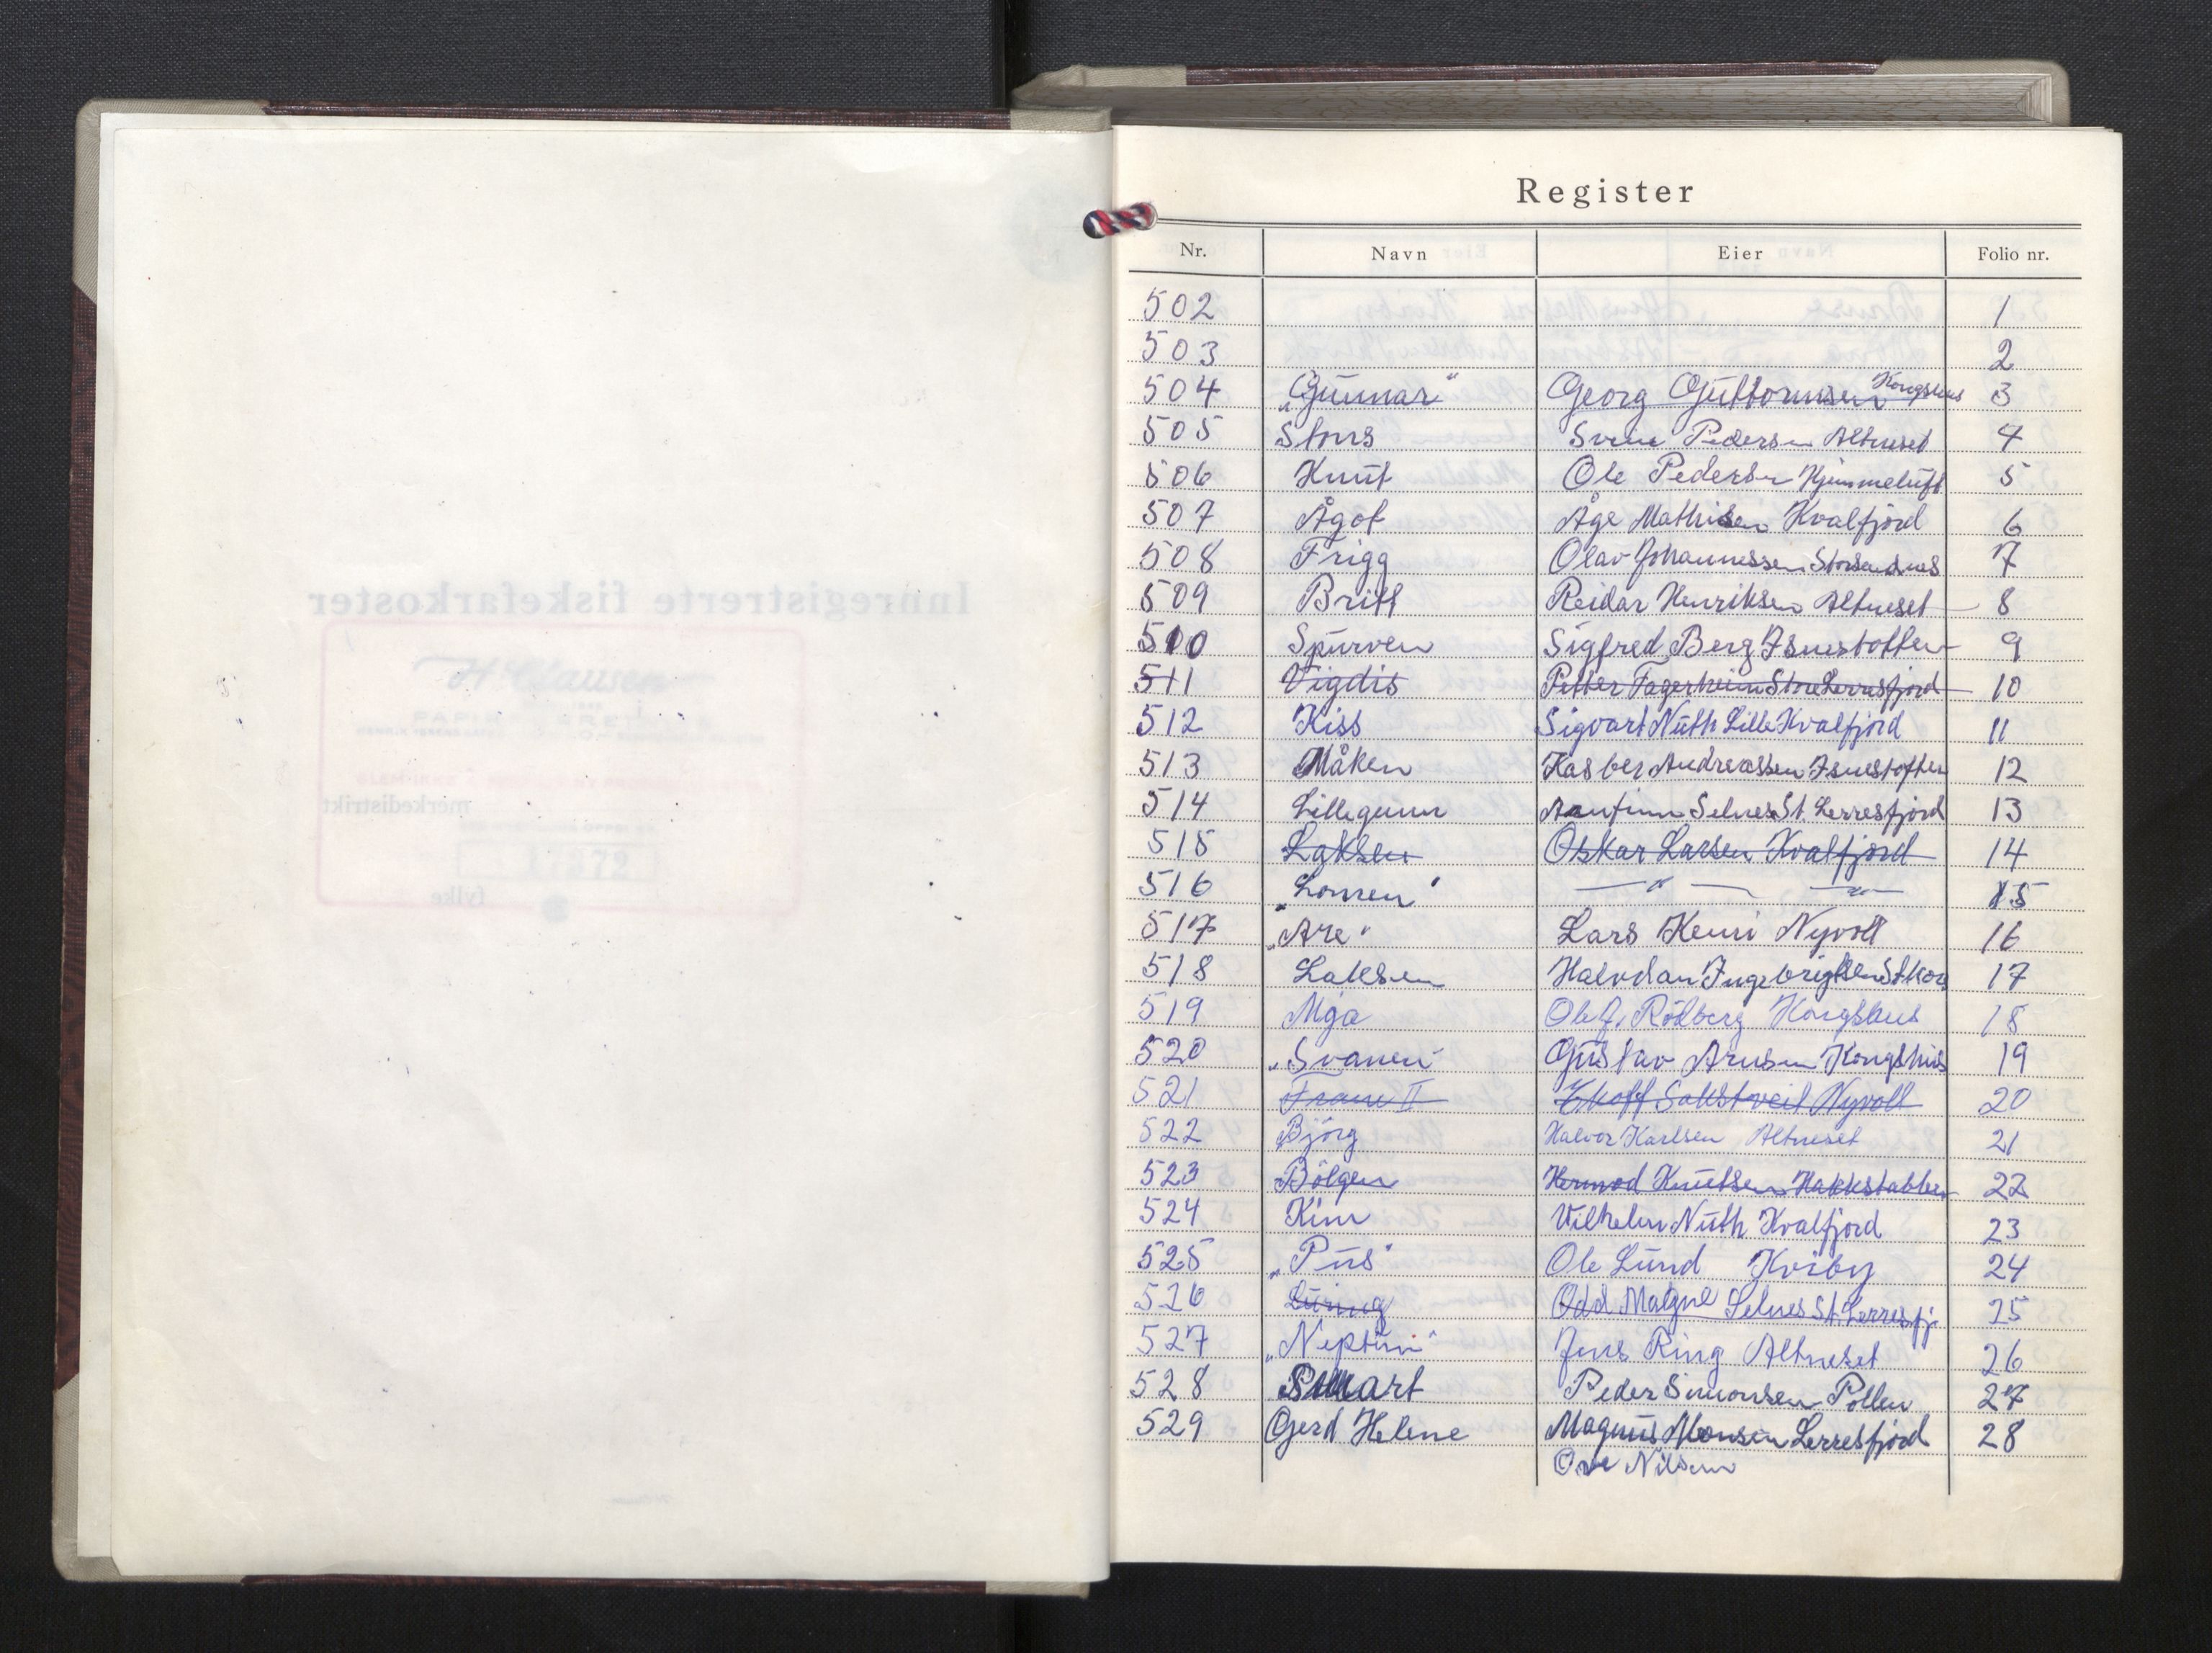 Register
Nr. Navn Eier Folio nr.
502 1
503 2
504 „Gunnar" Georg Guttormsen Kongshus 3
505 Stons Svein Pedersen Altneset 4
506 Knut Ole Pedersen Hjemmeluft 5
507 Ågot Åge Mathisen Kvalfjord 6
508 Frigg Olav Johannessen Storsandnes 7
509 Britt Reidar Henriksen Altneset 8
510 Spurven Sigfred Berg Isnestoften 9
511 Vigdis Petter Fagerheim Store Lerresfjord 10
512 Kiss Sigvart Nuth Lille Kvalfjord 11
513 Måken Kasber Andreassen Isnestoften 12
514 Lillegunn Arnfinn Selnes St. Lerresfjord 13
515 Laksen Oskar Larsen Kvalfjord 14
516 „Lomen" — " — — " — 15
517 „Are" Lars Henri Nyvoll 16
518 Laksen Halvdan Ingebrigtsen St.kor 17
519 Mga Ole J. Rødberg Kongshus 18
520 „Svanen" Gustav Arnsen Kongshus 19
521 Fram II Sakstveit Nyvoll 20
522 Bjørg Halvor Karlsen Altneset 21
523 Bølgen Hermod Knutsen Hakkstabben 22
524 Kim Vilhelm Nuth Kvalfjord 23
525 „Pus" Ole Lund Kviby 24
526 Odd Magne Selnes St. Lerresfj 25
527 „Neptun" Jens Ring Altneset 26
528 Smart Peder Simonsen Pollen 27
529 Gerd Helene Magnus Monsen Lerresfjord 28
Ove Nilsen